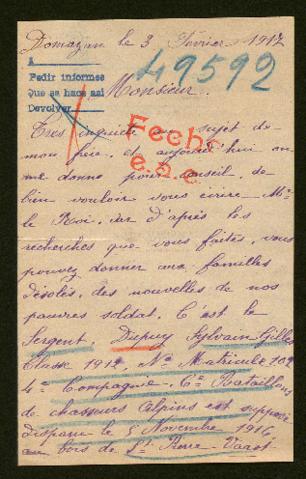 Domazan le 3 Février 1917
A
Pedir informes
Que se hace así
Devolver
49592
Monsieur.
Fecho
e.s.e.
Très inquiète sujet de
mon frère, et aujourd'hui on
me donne pour conseil, de
bien vouloir vous écrire Mr
le Roi, car d'après les
recherches que vous faites, vous
pouvez donner aux familles
désolés, des nouvelles de nos
pauvres soldat. C'est le
Sergent. Dupuy Sylvain Gilles
Classe 1912. No Matricule 102
4e Compagnie. 6e Bataillons
de chasseurs Alpins est supposé
disparu le 5 Novembre 1916
au bois de St Pierre-Vaast